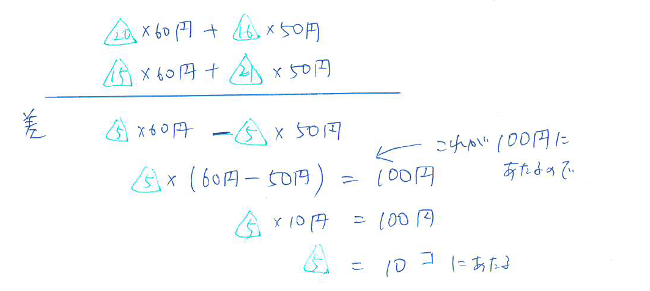 20 × 60円 + 16 × 50円
15 × 60円 + 21 × 50円
差
5 × 60円 - 5 × 50円
これが100円に
あたるので
5 × (60円 - 50円) = 100円
5 × 10円 = 100円
5 = 10コにあたる